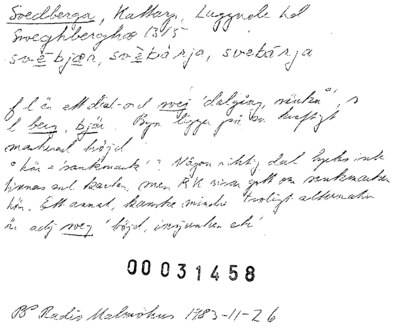 Svedberga, Kattarp, Luggude hd
Sweghberghæ 1315
svèbjær, svèbàrja, svebàrja
f l än ett dial-ord sveg 'dalgång, sänka', s
l berg, bjär. Byn ligger på en kraftigt
markerad höjd
här = 'sänkmark'? Någon riktig dal tycks inte
finnas enl kartan, men RK visar gott om sänkmarker
här. Ett annat, kanske mindre troligt alternativ
är adj sveg 'böjd, insjunken etc'
00031458
Radio Malmöhus 1983-11-26